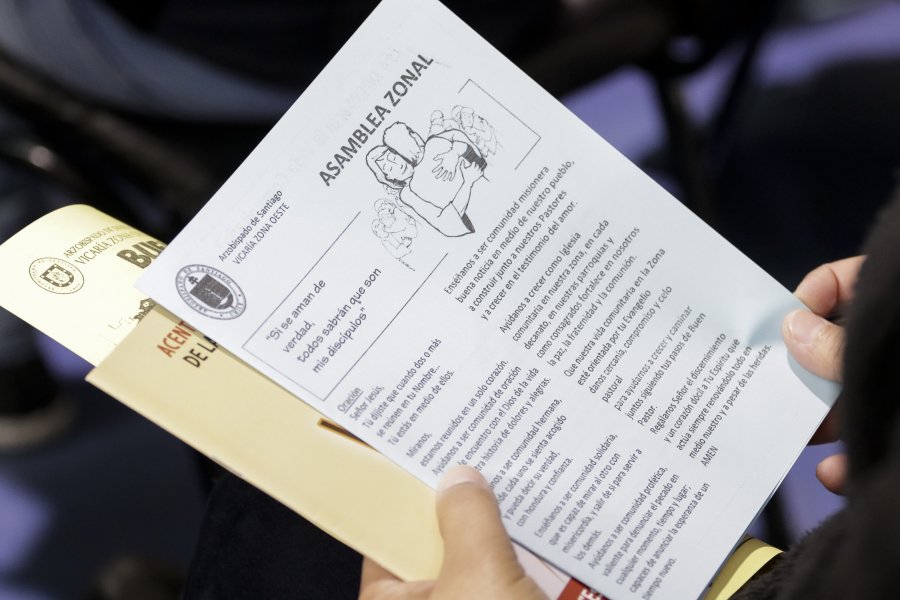 Arzobispado de Santiago
VICARÍA ZONA OESTE
ASAMBLEA ZONAL
"Si se aman de
verdad,
todos sabrán que son
mis discípulos"
Oración
Señor Jesús,
Tú dijiste que cuando dos o más
se reúnen en tu Nombre...
Tú estás en medio de ellos.
Míranos,
estamos reunidos en un solo corazón.
Ayúdanos a ser comunidad de oración
encuentro con el Dios de la vida
tra historia de dolores y alegrías.
anos a ser comunidad hermana,
de cada uno se sienta acogido
y pueda decir su verdad,
con hondura y confianza.
Enséñanos a ser comunidad solidaria,
que es capaz de mirar al otro con
misericordia, y salir de sí para servir a
los demás.
Ayúdanos a ser comunidad profética,
valiente para denunciar el pecado en
cualquier momento, tiempo y lugar;
capaces de anunciar la esperanza de un
tiempo nuevo.
Enséñanos a ser comunidad misionera
buena noticia en medio de nuestro pueblo,
a construir junto a nuestros Pastores
y a crecer en el testimonio del amor.
Ayúdanos a crecer como Iglesia
comunitaria en nuestra zona, en cada
decanato, en nuestras parroquias y
como consagrados fortalece en nosotros
la paz, la fraternidad y la comunión.
Que nuestra vida comunitaria en la Zona
esté orientada por tu Evangelio
danos cercanía, compromiso y celo
pastoral
para ayudarnos a crecer y caminar
juntos siguiendo tus pasos de Buen
Pastor.
Regálanos Señor el discernimiento
y un corazón dócil a Tu Espíritu que
actúa siempre renovándolo todo en
medio nuestro y a pesar de las heridas.
AMEN
ARZOBISPADO DE SAN
VICARÍA ZONA
ACENT
DE LA